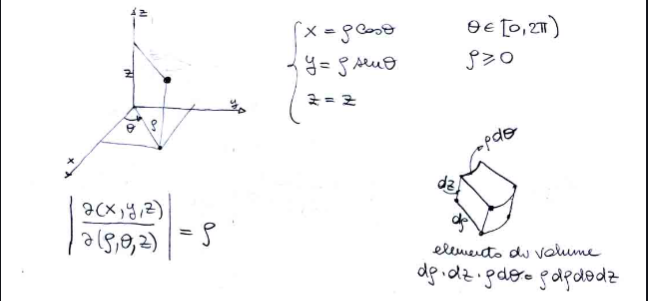 z
z
y
θ ρ
x
x = ρ cosθ
y = ρ senθ
z = z
θ ∈ [0, 2π)
ρ ⩾ 0
|∂(x, y, z) / ∂(ρ, θ, z)| = ρ
ρdθ
dz
dρ
elemento du volume
dρ · dz · ρdθ = ρ dρ dθ dz